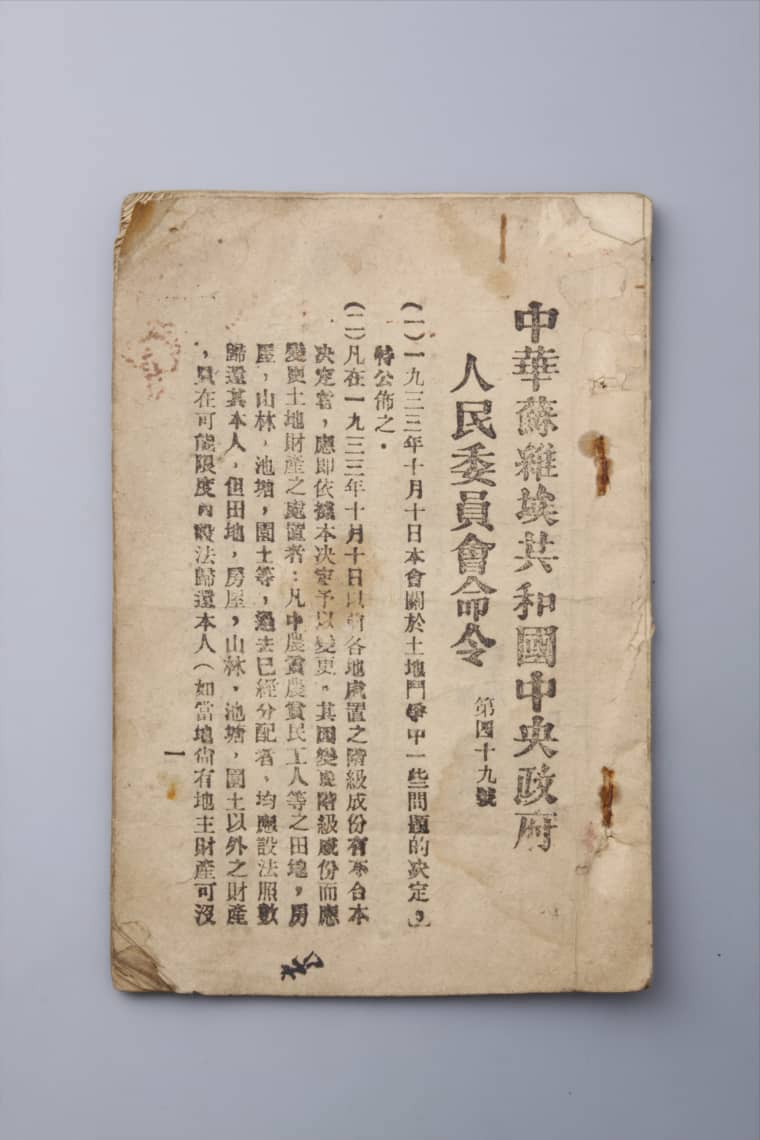 中華蘇維埃共和國中央政府
人民委員會命令
第四十九號
(一)一九三三年十月十日本會關於土地鬥爭中一些問題的决定,
特公佈之.
(二)凡在一九三三年十月十日以前各地處置之階級成份有不合本
决定者,應即依據本决定予以變更,其因變更階級成份而應
變更土地財產之處置者:凡中農貧農貧民工人等之田地,房
屋,山林,池塘,園土等,過去已經分配者,均應設法照數
歸還其本人,但田地,房屋,山林,池塘,園土以外之財產
,只在可能限度內設法歸還本人(如當地尙有地主財產可沒
一